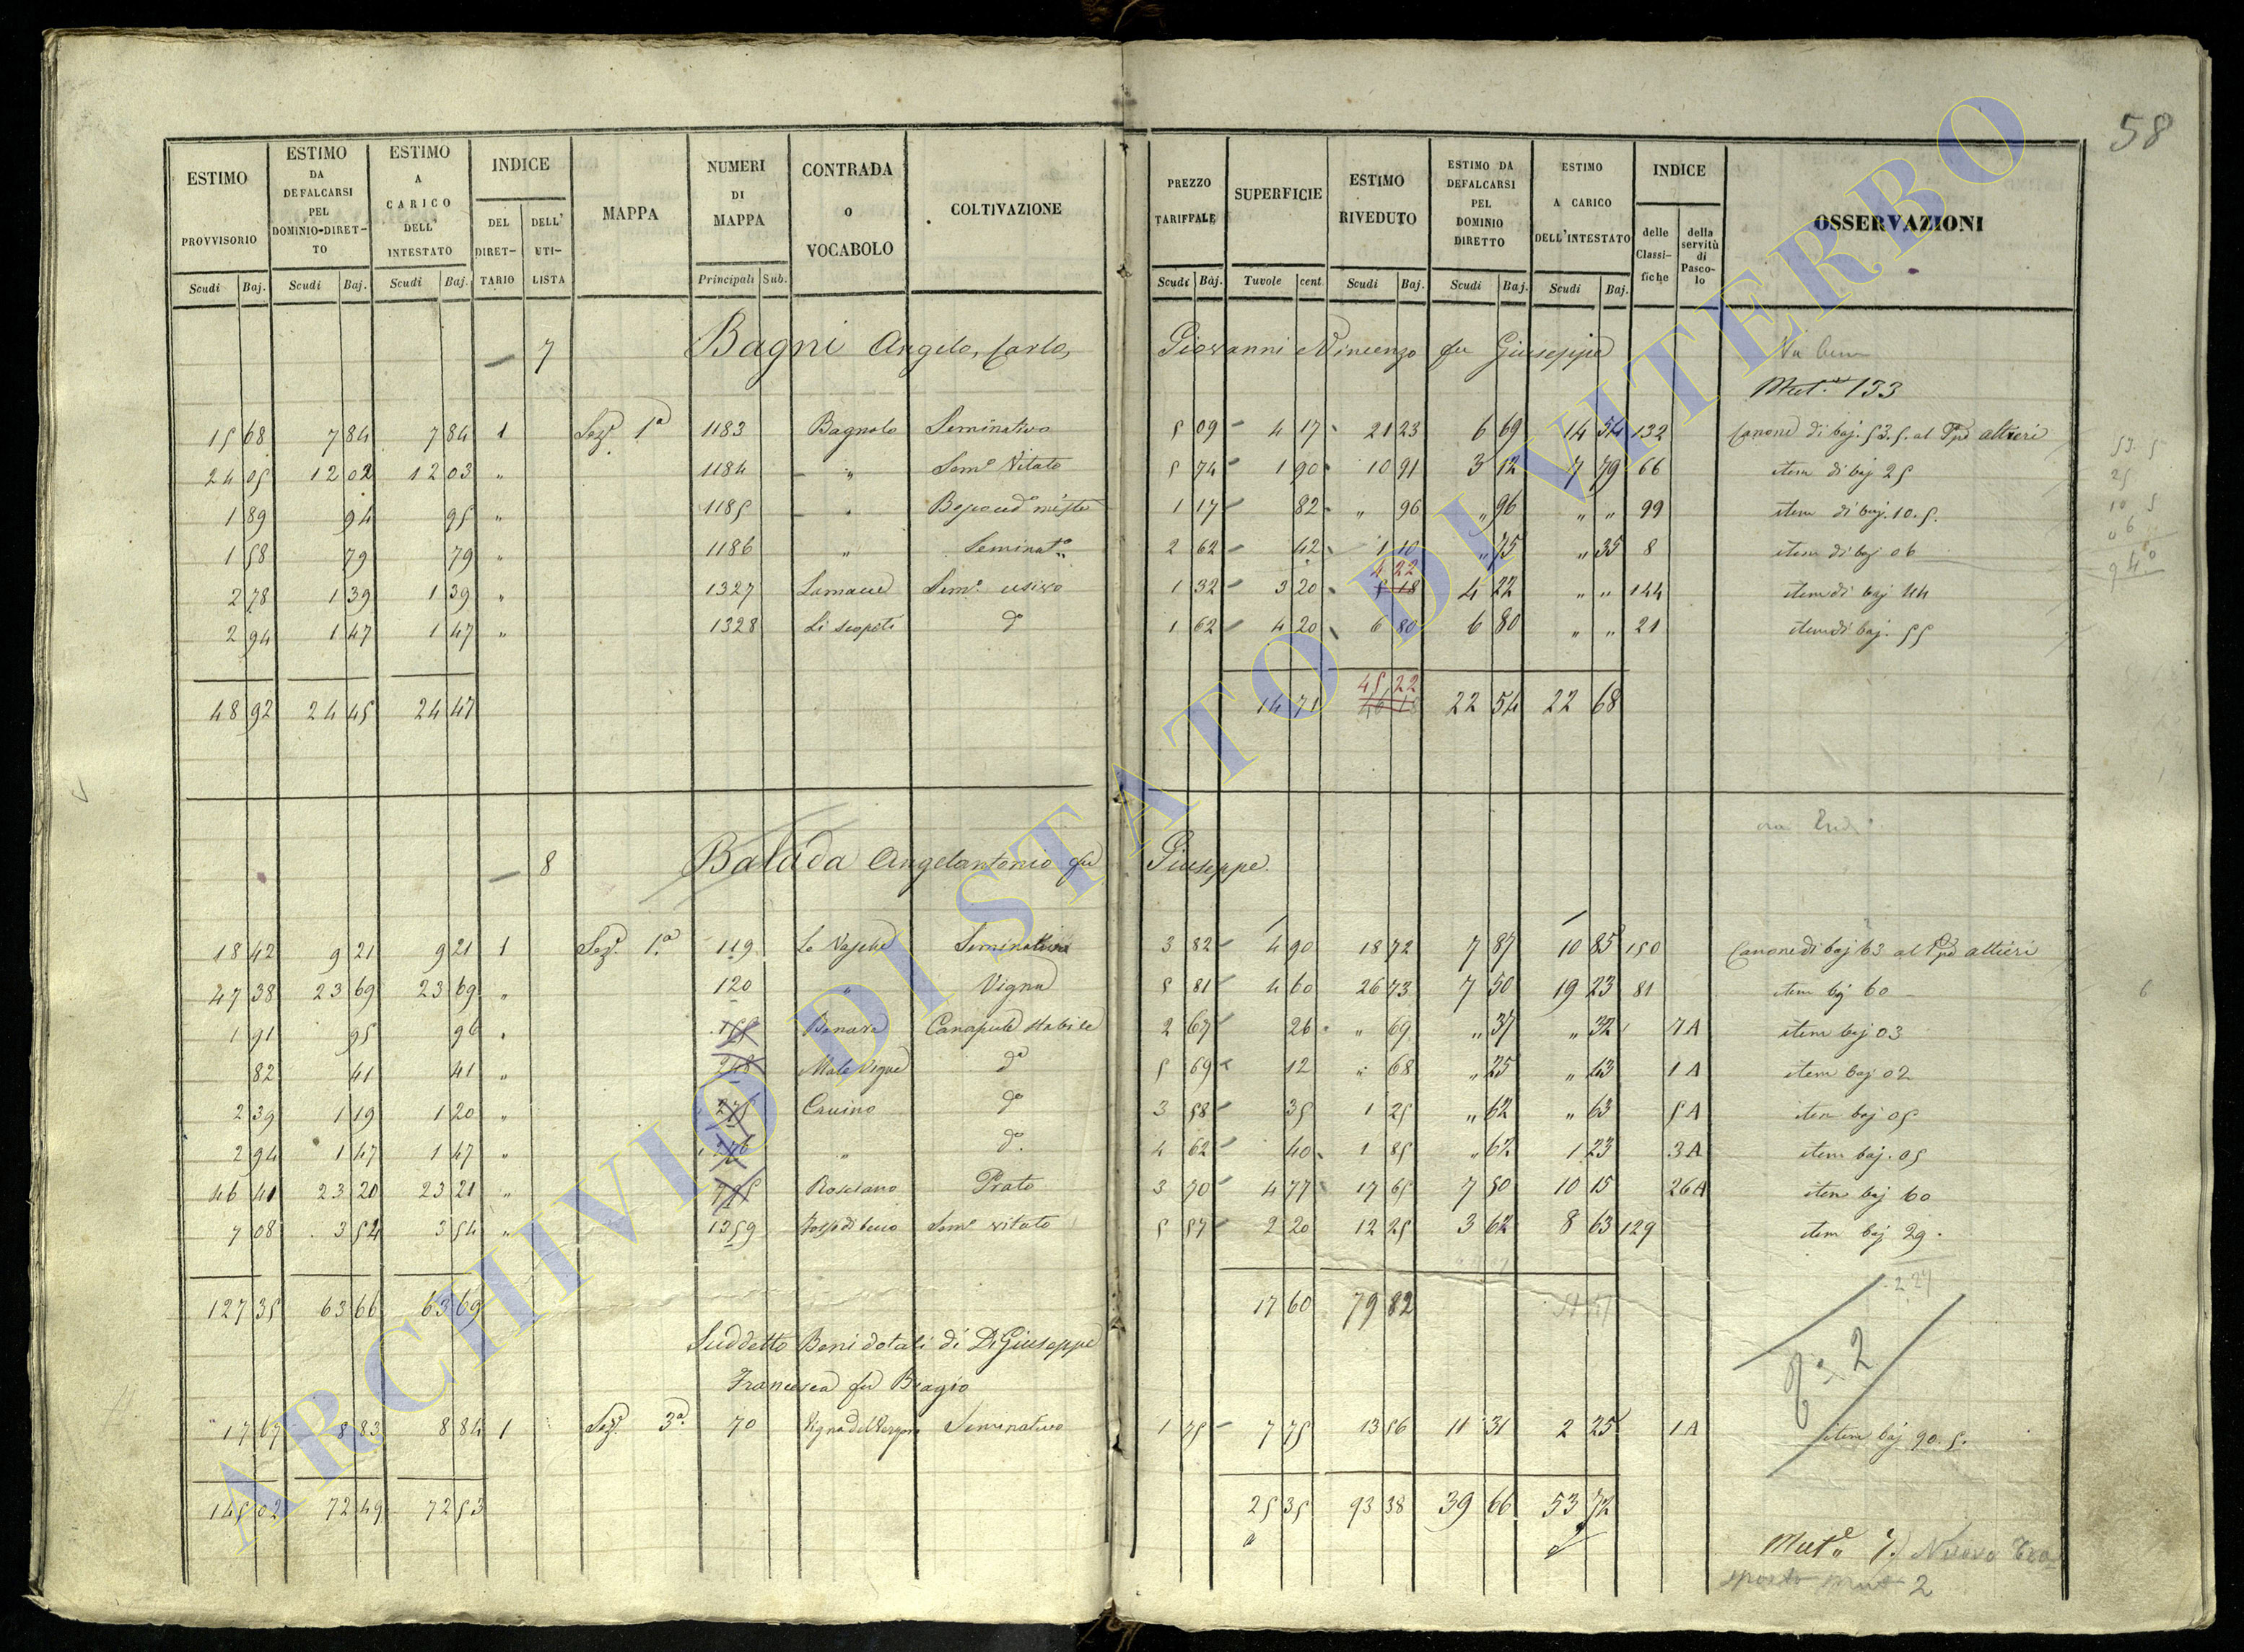 58
ESTIMO PROVVISORIO
ESTIMO DA DEFALCARSI PEL DOMINIO-DIRETTO
ESTIMO A CARICO DELL' INTESTATO
INDICE
DEL DIRETTARIO
DELL' UTILISTA
MAPPA
NUMERI DI MAPPA
CONTRADA O VOCABOLO
COLTIVAZIONE
Scudi Baj. Scudi Baj. Scudi Baj. Principali Sub.
PREZZO TARIFFALE
SUPERFICIE
ESTIMO RIVEDUTO
ESTIMO DA DEFALCARSI PEL DOMINIO DIRETTO
ESTIMO A CARICO DELL'INTESTATO
INDICE
delle Classifiche
della servitù di Pascolo
OSSERVAZIONI
Scudi Baj. Tavole cent. Scudi Baj. Scudi Baj. Scudi Baj.
7 Bagni Angelo, Carlo, Giovanni e Vincenzo fu Giuseppe
Mut. 133
15 68 7 84 7 84 1 Sez. 1ª 1183 Bagnolo Seminativo 5 09 4 17 21 23 6 69 14 54 132 Canone di baj. 53.5. al Ppe Altieri
24 05 12 02 12 03 " 1184 " Sem.o Vitato 5 74 1 90 10 91 3 12 7 79 66 item di baj 25
1 89 94 95 " 1185 " misto 1 17 82 " 96 " 96 " " 99 item di baj. 10.5.
1 58 79 79 " 1186 " Seminat.o 2 62 42 1 10 " 75 " 35 8 item di baj 06
2 78 1 39 1 39 " 1327 Sem.o 1 32 3 20 4 22 5 18 4 22 " " 144 item di baj 44
2 94 1 47 1 47 " 1328 Li scopiti d.o 1 62 4 20 6 80 6 80 " " 21 item di baj. 55
48 92 24 45 24 47 14 71 45 22 22 54 22 68
8 Balada Angelantonio fu Giuseppe.
18 42 9 21 9 21 1 Sez. 1.ª 119 Le Vasche Seminativo 3 82 4 90 18 72 7 87 10 85 150 Canone di baj 63 al Ppe Altieri
47 38 23 69 23 69 " 120 " Vigna 5 81 4 60 26 73 7 50 19 23 81 item baj 60
1 91 95 96 " Canapule stabile 2 67 26 " 69 " 37 " 32 7A item baj 03
82 41 41 " 248 Male Vigne d.o 5 69 12 " 68 " 25 " 43 1A item baj 02
2 39 1 19 1 20 " 275 d.o 3 58 35 1 25 " 62 " 63 5A item baj 05
2 94 1 47 1 47 " " d.o 4 62 40 1 85 " 62 1 23 3A item baj. 05
46 41 23 20 23 21 " Rosciano Prato 3 70 4 77 17 65 7 50 10 15 26A item baj 60
7 08 3 54 3 54 " 1359 Sem.o vitato 5 57 2 20 12 25 3 62 8 63 129 item baj 29.
127 35 63 66 63 69 17 60 79 82
Suddetto Beni dotali di Di Giuseppe
Francesca fu Biagio
17 67 8 83 8 84 1 Sez. 3ª. 70 Seminativo 1 75 7 75 13 56 11 31 2 25 1A item baj 90.5.
145 02 72 49 72 53 25 35 93 38 39 66 53 72
Mut.e
2
ARCHIVIO DI STATO DI VITERBO